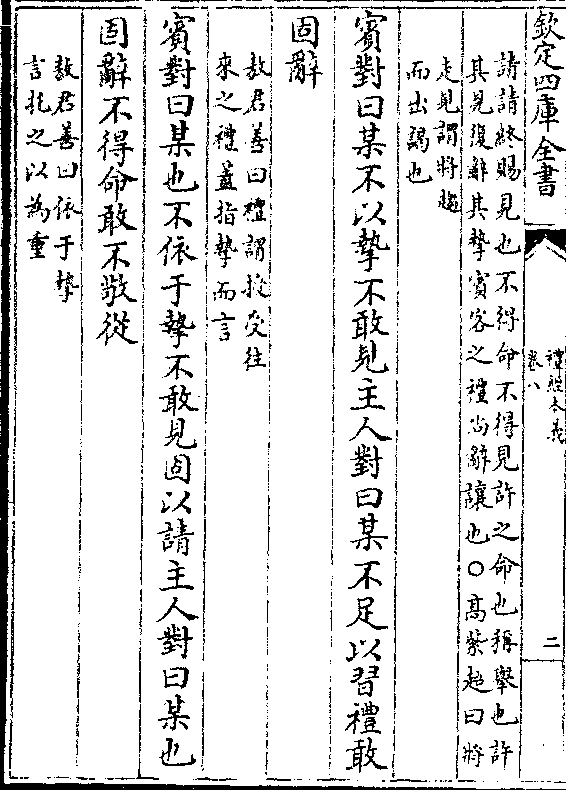 欽定四庫全書
禮經本義
卷八
二
請請終賜見也不得命不得見許之命也稱舉也許
其見復辭其摯賓客之禮尚辭讓也○高紫超曰將
走見謂將趨
而出謁也
賓對曰某不以摯不敢見主人對曰某不足以習禮敢
固辭
敖君善曰禮謂授受往
來之禮蓋指摯而言
賓對曰某也不依于摯不敢見固以請主人對曰某也
固辭不得命敢不敬從
敖君善曰依于摯
言托之以為重